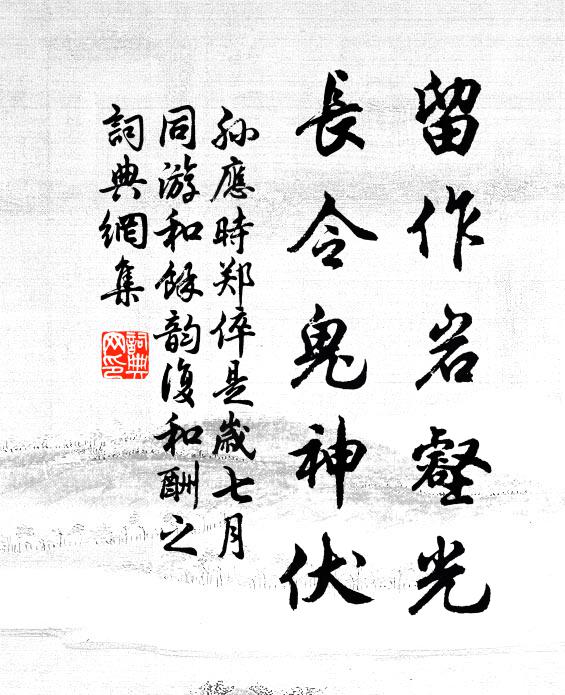 留作岩壑光
長令鬼神伏
孙應時郑倅是歲七月
同游和馀韵復和酬之
詞典網集
詞典
网印